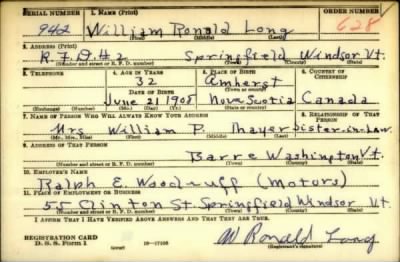 SERIAL NUMBER 1. NAME (Print) ORDER NUMBER
9462 William Ronald Long 628
(First) (Middle) (Last)
2. ADDRESS (Print)
R.F.D.#2 Springfield Windsor Vt.
(Number and street or R. F. D. number) (Town) (County) (State)
3. TELEPHONE 4. AGE IN YEARS 5. PLACE OF BIRTH 6. COUNTRY OF CITIZENSHIP
32 Amherst
DATE OF BIRTH (Town or county)
June 21 1908 Nova Scotia Canada
(Exchange) (Number) (Mo.) (Day) (Yr.) (State or country)
7. NAME OF PERSON WHO WILL ALWAYS KNOW YOUR ADDRESS 8. RELATIONSHIP OF THAT PERSON
Mrs William P. Thayer Sister-in-law
(Mr., Mrs., Miss) (First) (Middle) (Last)
9. ADDRESS OF THAT PERSON
Barre Washington Vt.
(Number and street or R. F. D. number) (Town) (County) (State)
10. EMPLOYER'S NAME
Ralph E. Woodruff (Motors)
11. PLACE OF EMPLOYMENT OR BUSINESS
55 Clinton St. Springfield Windsor Vt.
(Number and street or R. F. D. number) (Town) (County) (State)
I AFFIRM THAT I HAVE VERIFIED ABOVE ANSWERS AND THAT THEY ARE TRUE.
REGISTRATION CARD
D. S. S. Form 1 (over) 16-17105
W Ronald Long
(Registrant's signature)